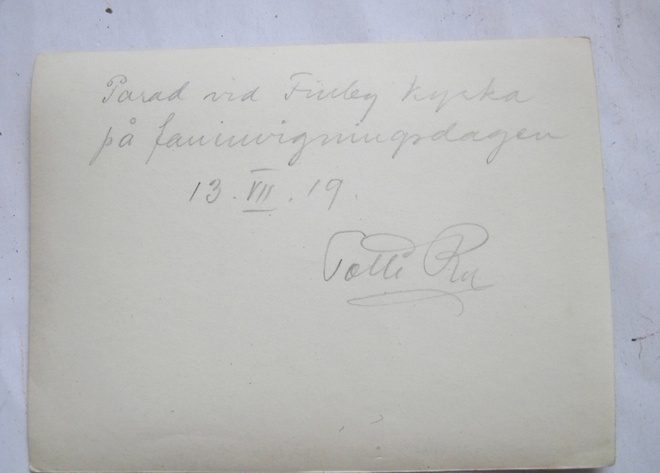 Parad vid Finby kyrka
på faninvigningsdagen
13.VII.19.